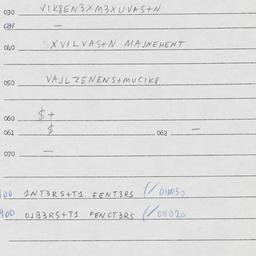 030 VIK8EN3XM3XUVAS+N
031 —
040 XVILVAS+N MAJNEHENT
050 VAJLZENENS+MUCIK8
060 $+
061 $ 062 —
070 —
00 1NT3RS+T1 FENT3RS (/011030
900 OJB3RS+T1 FENCT3RS (/011020